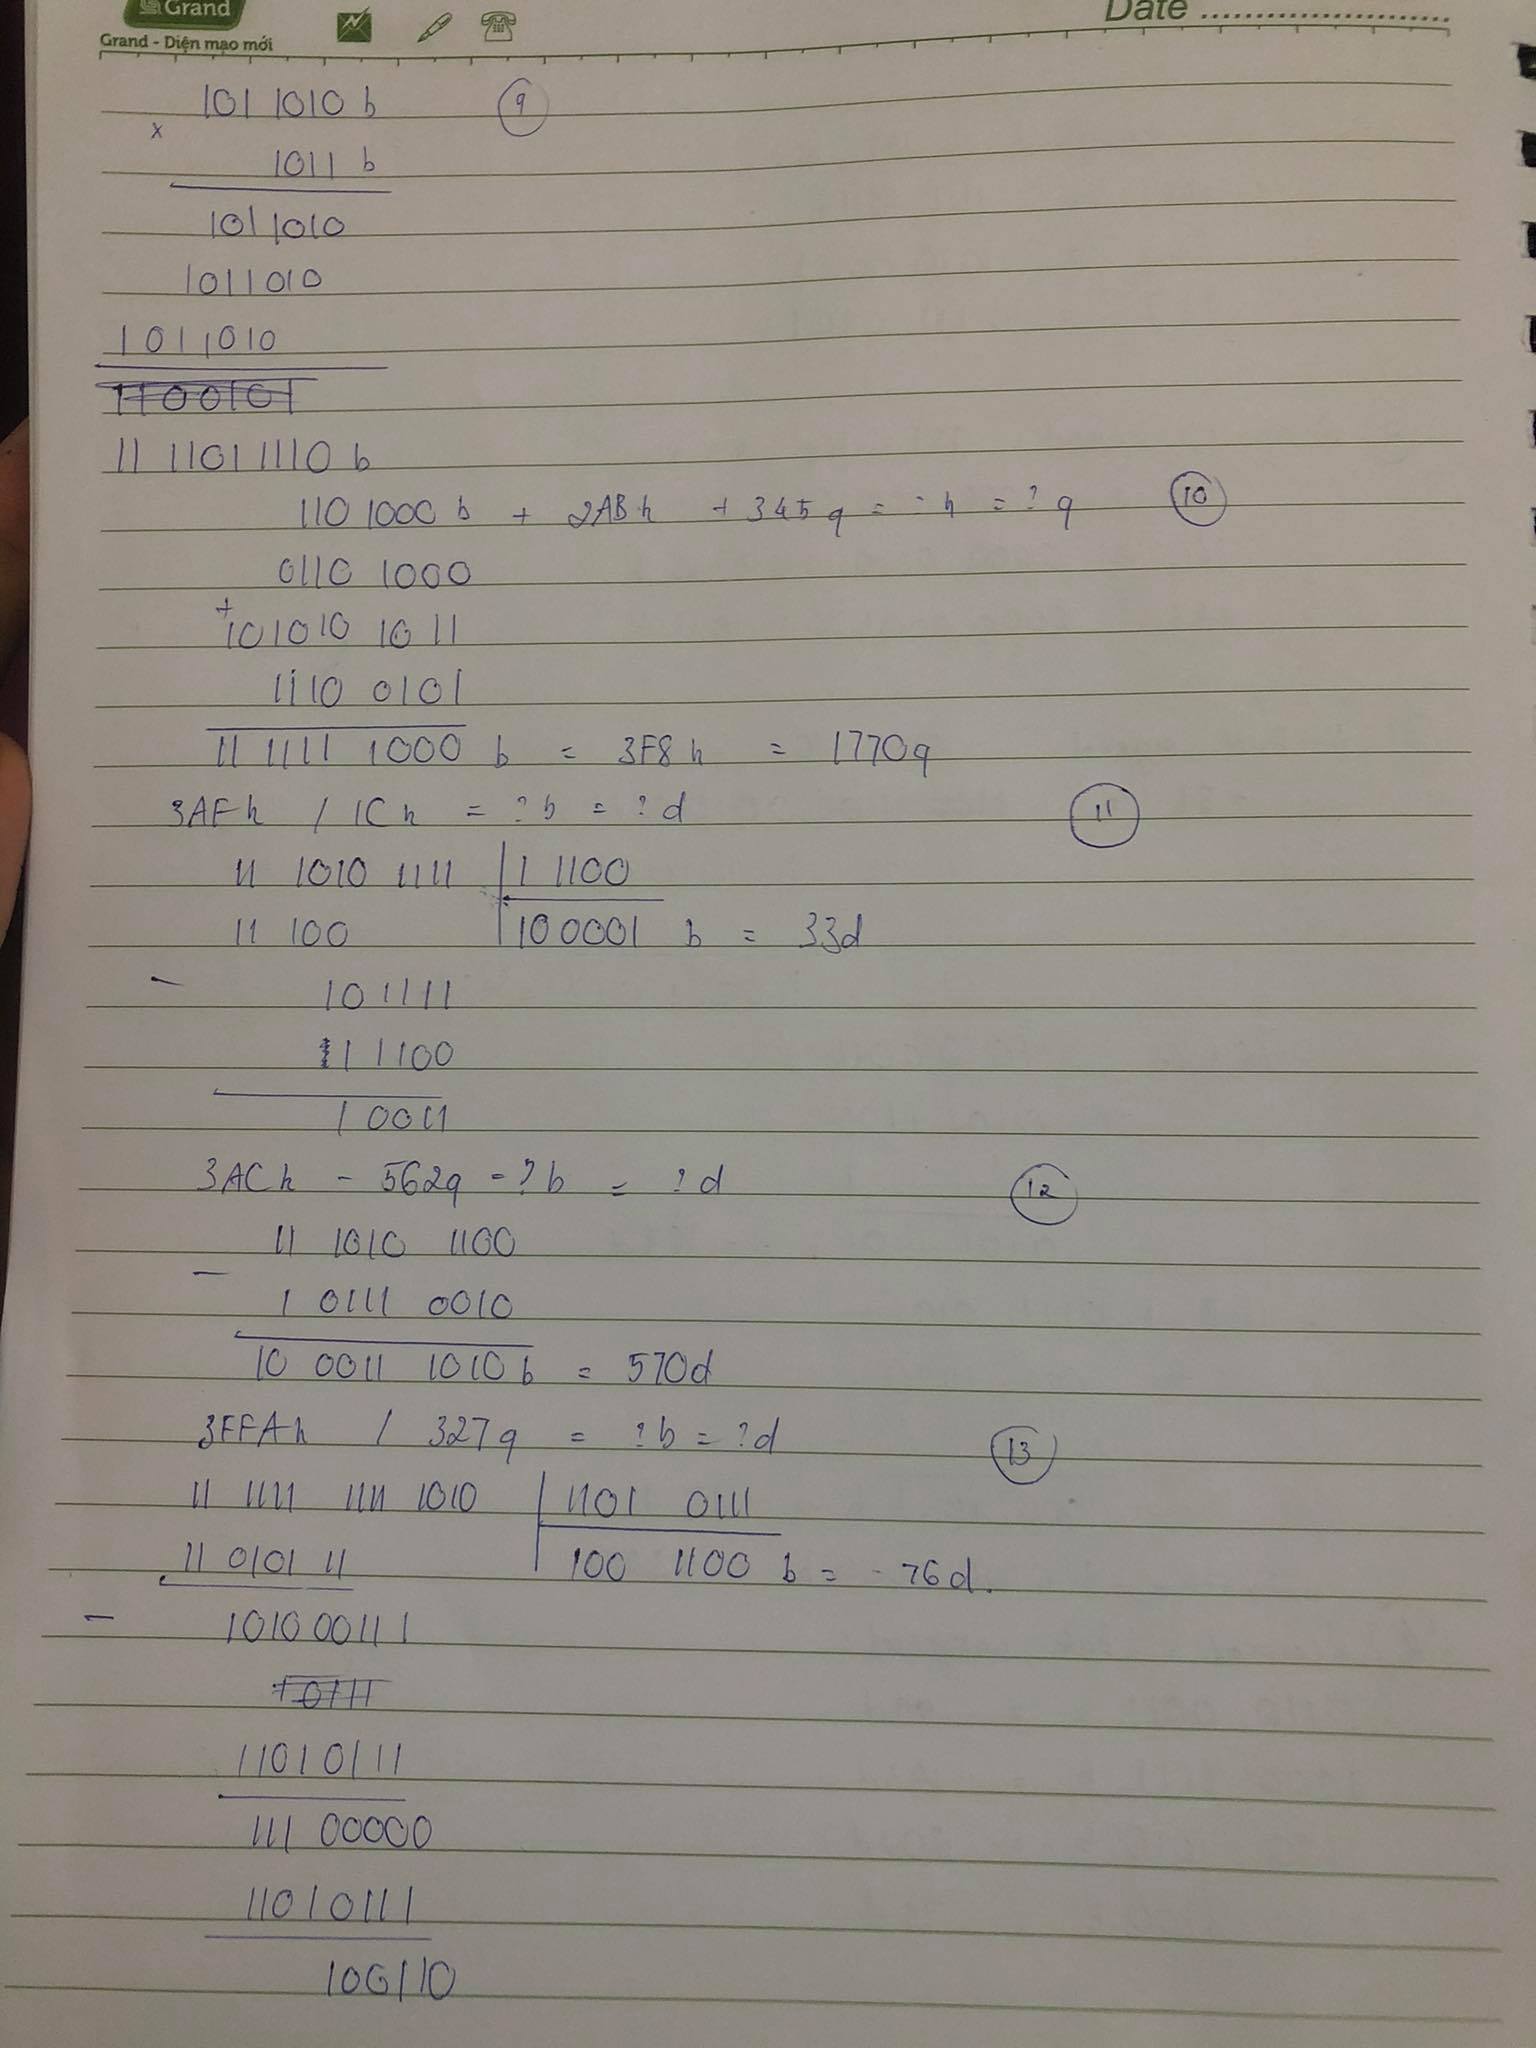 Grand
Grand - Diện mạo mới
Date
1011010 b 9
x
1011 b
1011010
1011010
1011010
1100101
11 11011110 b
110 1000 b + 2AB h + 345 q = ? h = ? q 10
0110 1000
+
101010 1011
1110 0101
11 1111 1000 b = 3F8 h = 1770q
3AF h / 1C h = ? b = ? d 11
11 1010 1111 1 1100
11 100 100001 b = 33d
-
101111
11100
10011
3AC h - 562q = ? b = ? d 12
11 1010 1100
-
1 0111 0010
10 0011 1010 b = 570d
3FFA h / 327 q = ? b = ? d 13
11 1111 1111 1010 1101 0111
11 0101 11 100 1100 b = 76 d.
-
101000111
10111
11010111
111 00000
11010111
100110